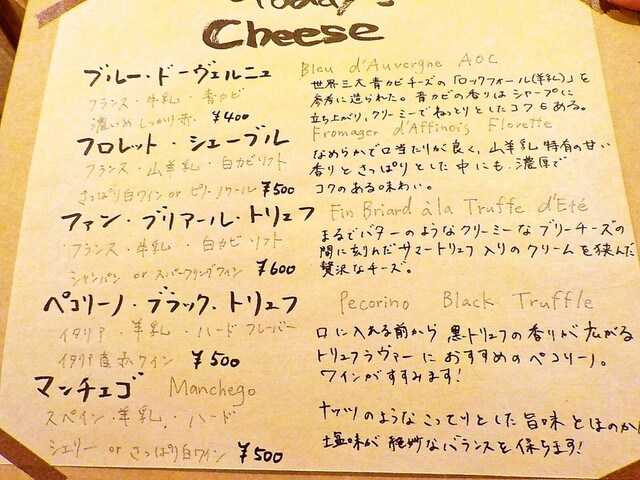 Today's
Cheese
ブルー・ドーヴェルニュ Bleu d'Auvergne AOC
フランス・牛乳・青カビ
濃いめ しっかり赤 ¥400
世界三大青カビチーズの「ロックフォール(羊乳)」を
参考に造られた。青カビの香りはシャープに
立ち上がり、クリーミーでねっとりとしたコクもある。
フロレット・シェーブル Fromager d'Affinois Florette
フランス・山羊乳・白カビソフト
さっぱり白ワイン or ピノ・ノワール ¥500
なめらかで口当たりが良く、山羊乳特有の甘い
香りとさっぱりとした中にも濃厚で
コクのある味わい。
ファン・ブリアール・トリュフ Fin Briard à la Truffe d'Eté
フランス・牛乳・白カビソフト
シャンパン or スパークリングワイン ¥600
まるでバターのようなクリーミーなブリーチーズの
間に刻んだサマートリュフ入りのクリームを挟んだ
贅沢なチーズ。
ペコリーノ・ブラック・トリュフ Pecorino Black Truffle
イタリア・羊乳・ハード フレーバー
イタリア産赤ワイン ¥500
口に入れる前から黒トリュフの香りが広がる
トリュフラヴァーにおすすめのペコリーノ。
ワインがすすみます!
マンチェゴ Manchego
スペイン・羊乳・ハード
シェリー or さっぱり白ワイン ¥500
ナッツのようなこってりとした旨味とほのか
塩味が絶妙なバランスを保ちます!